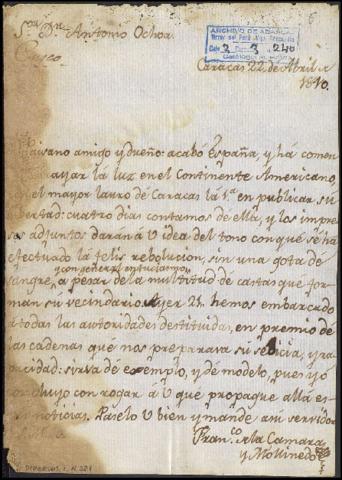 Sor Dn Antonio Ochoa.
Cuzco.
ARCHIVO DE
Caracas 22 de Abril
1810.
Paisano amigo y dueño: acabó España, y há comen
rayar la luz en el Continente Americano,
el mayor lauro de Caracas la 1.a en publicar su
libertad: cuatro dias contamos de ella, y los impre
sos adjuntos darán á V idea del tono con que se há
efectuado la felis revolucion, sin una gota de
y con general entuciasmo,
sangre, a pesar de la multitud de castas que for
man su vecindario. Ayer 21. hemos embarcado
á todas las autoridades destituidas, en premio de
las cadenas que nos preparava su sevicia, y ra
pacidad: sirva de exemplo, y de modelo, pues yó
concluyo con rogar á V que propague allá es
tas noticias. Páselo V bien y mande asi servidor
Fran.co de la Camara
y Mollinedo
DIVERSOS, 1, N.